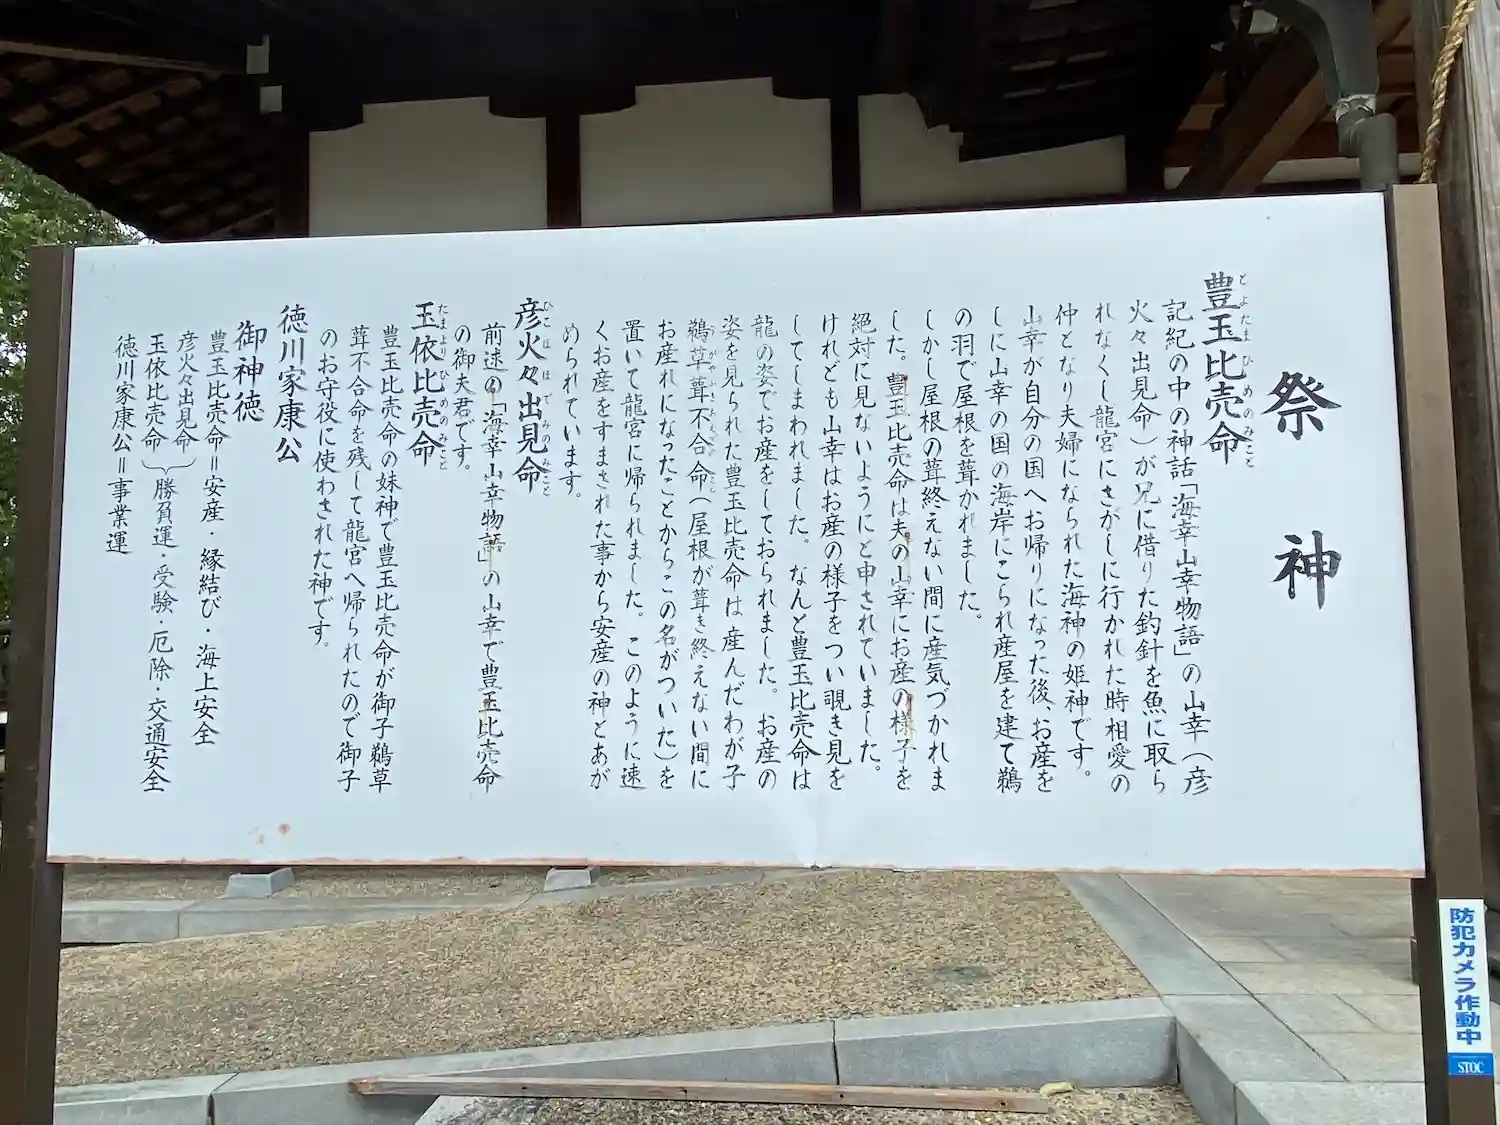 祭神
豊玉比売命
とよたまひめのみこと
記紀の中の神話「海幸山幸物語」の山幸（彦
火々出見命）が兄に借りた釣針を魚に取ら
れなくし龍宮にさがしに行かれた時相愛の
仲となり夫婦になられた海神の姫神です。
山幸が自分の国へお帰りになった後、お産を
しに山幸の国の海岸にこられ産屋を建て鵜
の羽で屋根を葺かれました。
しかし屋根の葺終えない間に産気づかれま
した。豊玉比売命は夫の山幸にお産の様子を
絶対に見ないようにと申されていました。
けれども山幸はお産の様子をつい覗き見を
してしまわれました。なんと豊玉比売命は
龍の姿でお産をしておられました。お産の
姿を見られた豊玉比売命は産んだわが子
鵜草葺不合命（屋根が葺き終えない間に
お産れになったことからこの名がついた）を
置いて龍宮に帰られました。このように速
くお産をすまされた事から安産の神とあが
められています。
彦火々出見命
ひこほほでみのみこと
前述の「海幸山幸物語」の山幸で豊玉比売命
の御夫君です。
玉依比売命
たまよりひめのみこと
豊玉比売命の妹神で豊玉比売命が御子鵜草
葺不合命を残して龍宮へ帰られたので御子
のお守役に使わされた神です。
徳川家康公
御神徳
豊玉比売命＝安産・縁結び・海上安全
彦火々出見命
玉依比売命
勝負運・受験・厄除・交通安全
徳川家康公＝事業運
防犯カメラ作動中
STOC